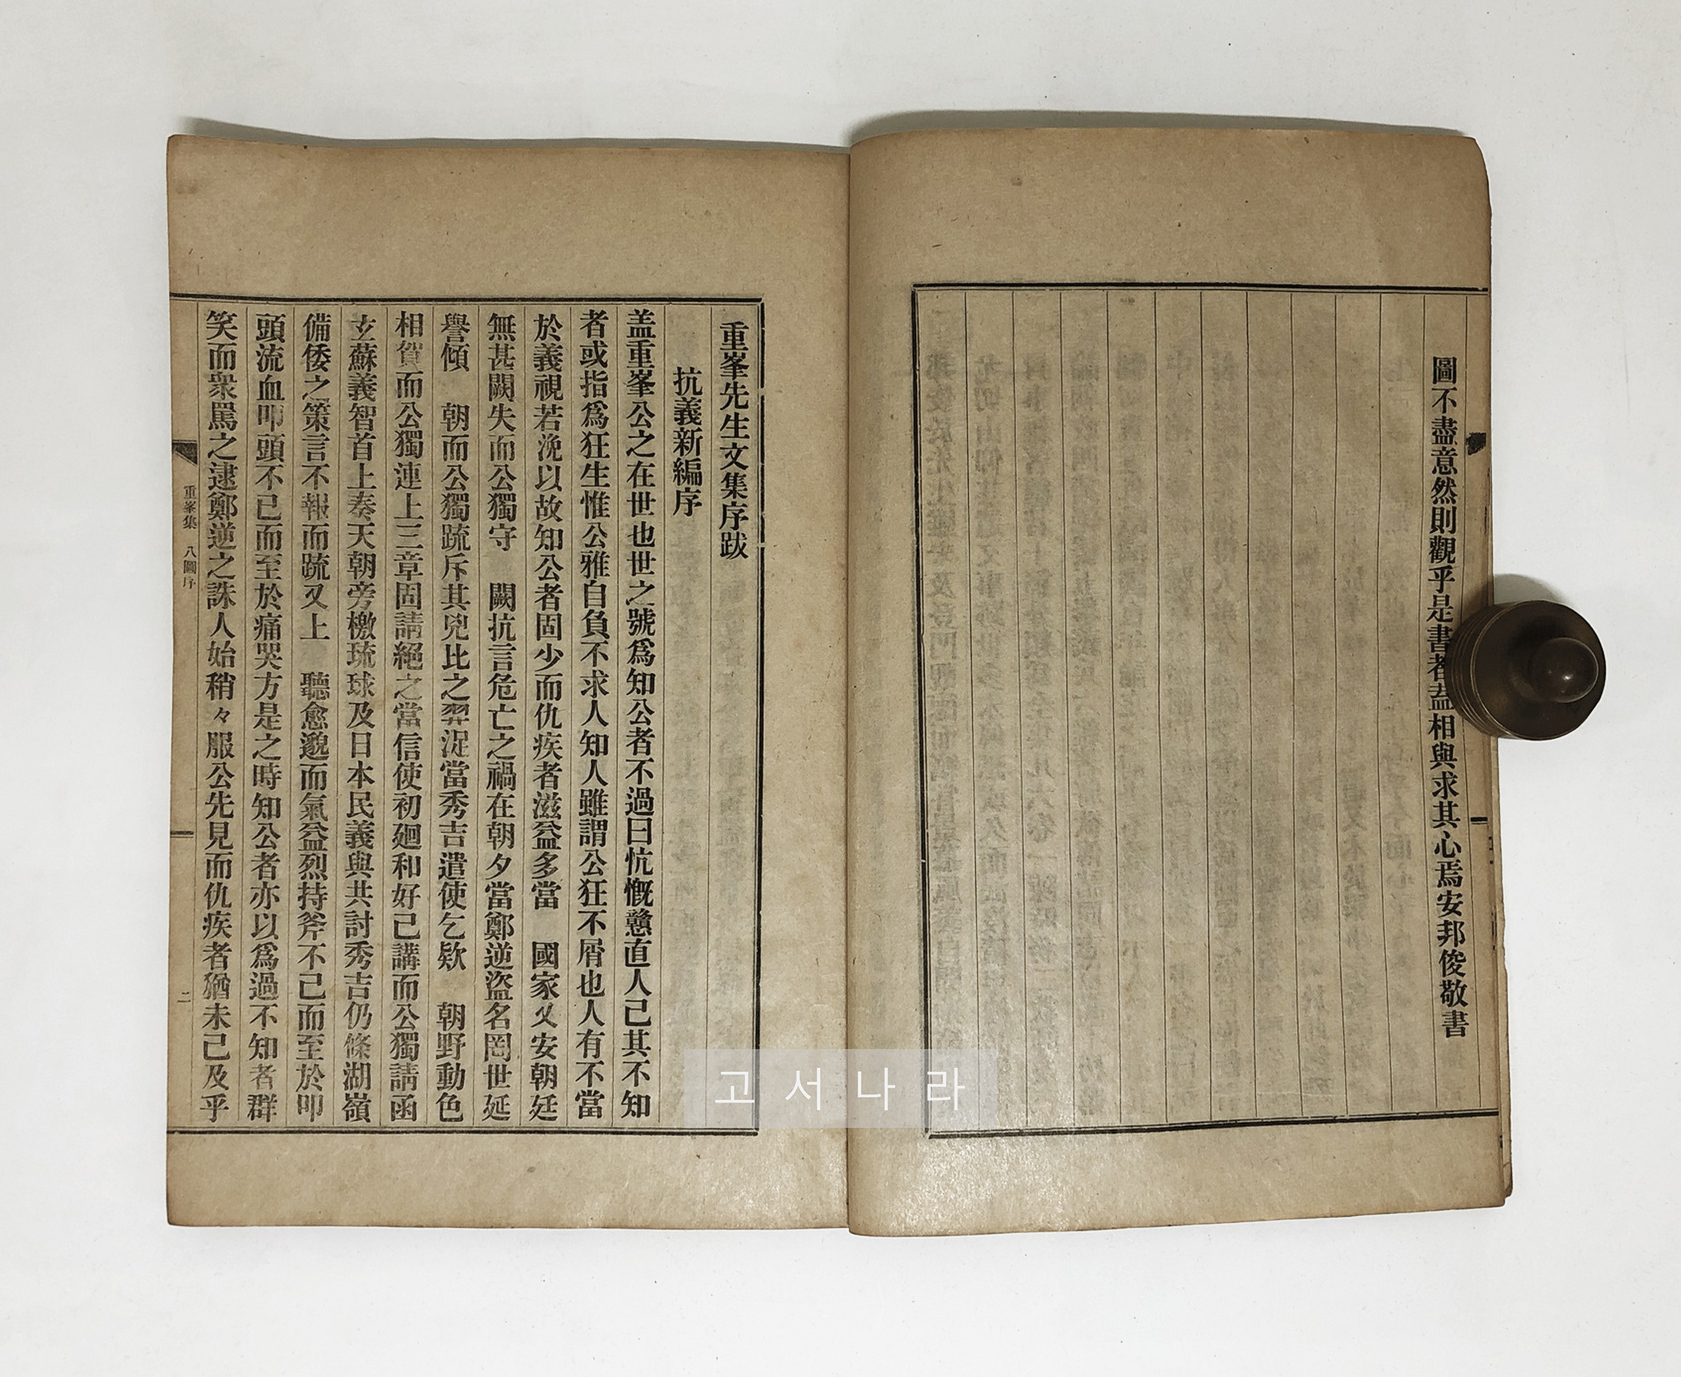 圖不盡意然則觀乎是書者益相與求其心焉安邦俊敬書
重峯先生文集序跋
抗義新編序
盖重峯公之在世也世之號爲知公者不過曰忼慨戇直人已其不知
者或指爲狂生惟公雅自負不求人知人雖謂公狂不屑也人有不當
於義視若浼以故知公者固少而仇疾者滋益多當 國家乂安朝廷
無甚闕失而公獨守 闕抗言危亡之禍在朝夕當鄭逆盜名罔世延
譽傾 朝而公獨疏斥其兇比之羿浞當秀吉遣使乞欵 朝野動色
相賀而公獨連上三章固請絕之當信使初廻和好已講而公獨請函
玄蘇義智首上奏天朝旁檄琉球及日本民義與共討秀吉仍條湖嶺
備倭之策言不報而疏又上 聽愈邈而氣益烈持斧不已而至於叩
頭流血叩頭不已而至於痛哭方是之時知公者亦以爲過不知者群
笑而衆罵之逮鄭逆之誅人始稍々服公先見而仇疾者猶未已及乎
重峯集 八圖序
二
고서나라